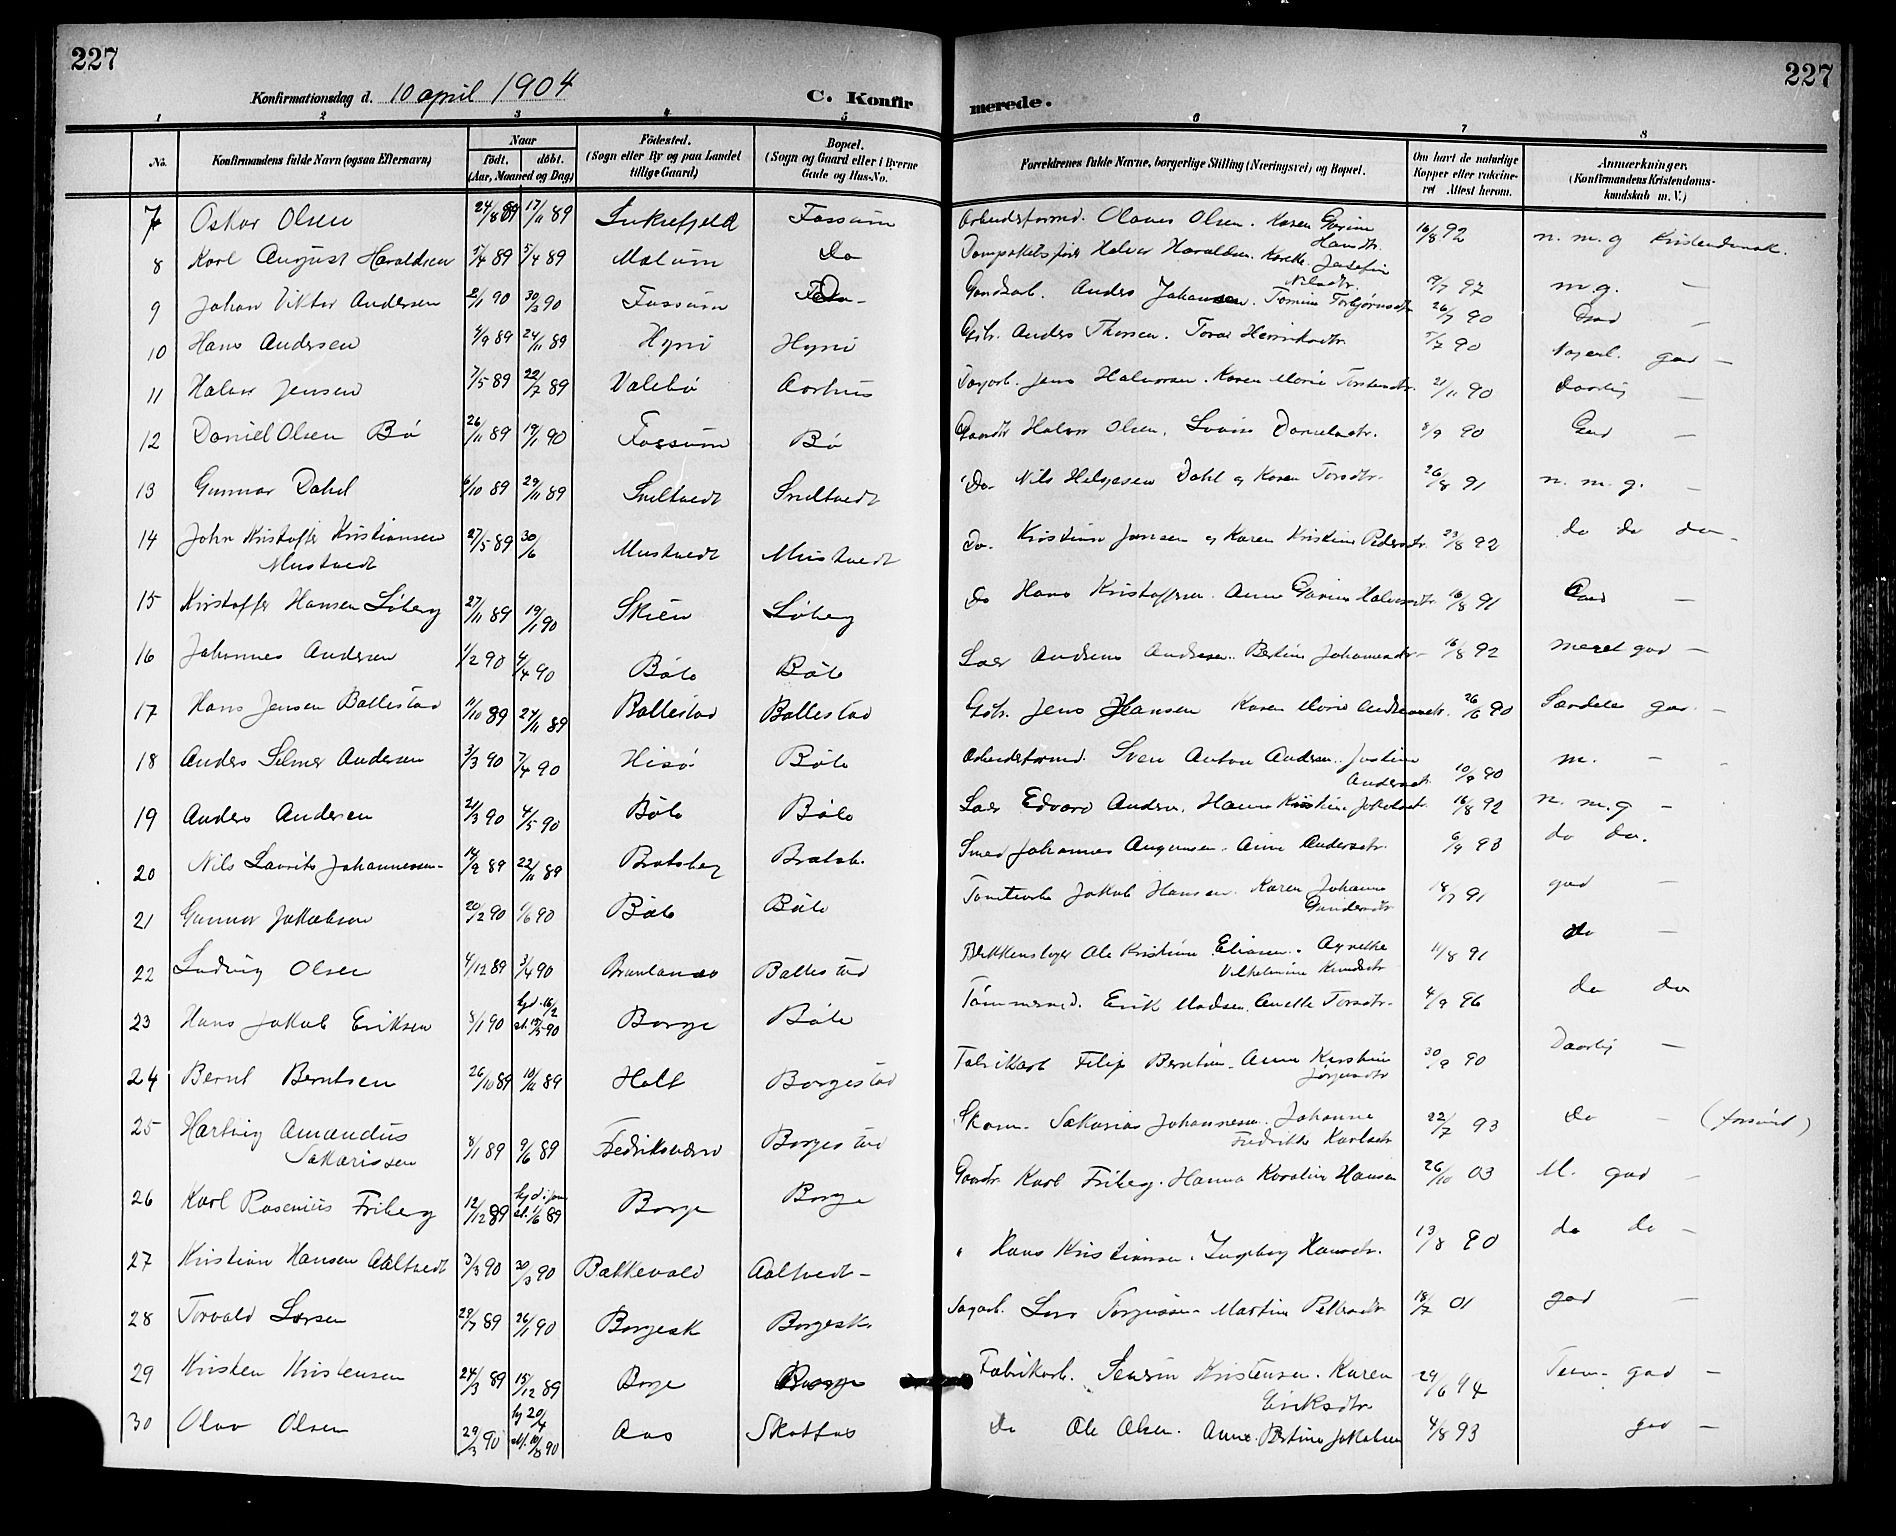 227
227
Konfirmationsdag d. 10 april 1904
C. Konfir
merede.
1 2 3 4 5 6 7 8
No. Konfirmandens fulde Navn (ogsaa Efternavn) Naar født. døbt. (Aar, Maaned og Dag) Fødested. (Sogn eller By og paa Landet tillige Gaard) Bopæl. (Sogn og Gaard eller i Byerne Gade og Hus-No. Forældrenes fulde Navne, borgerlige Stilling (Næringsvei) og Bopæl. Om havt de naturlige Kopper eller vakcineret Attest herom. Anmærkninger. (Konfirmandens Kristendomskundskab m. V.)
7 Oskar Olsen 24/8 89 17/11 89 Luksefjeld Fossum Arbeidsformd. Olaves Olsen. Karen Gurine Hansdtr. 16/8 92 n. m. g Kristendomsk.
8 Karl August Haraldsen 89 5/4 89 Mælum Do Halvor Haraldsen. Josefin Nilsdtr. 97 m. g. —
9 Johan Viktor Andersen 2/1 90 30/3 90 Fossum Do Gaardarb. Anders Johansen. Tomine Torbjørnsdtr 26/7 90 God —
10 Hans Andersen 4/9 89 24/11 89 Hyni Hyni Gbr. Anders Thorsen. Tone Henriksdtr 5/7 90 Nogenl. god —
11 Halvor Jensen 7/5 89 22/7 89 Valebø Aarhus Jens Halvorsen. Karen Marie Torstensdtr. 21/11 90 Daarlig —
12 Daniel Olsen Bø 26/11 89 19/1 90 Fossum Bø Gaardbr Halvor Olsen. Lovise Danielsdtr. 8/9 90 God —
13 Gunnar Dahl 6/10 89 29/11 89 Sneltvedt Sneltvedt Do. Nils Helgesen Dahl og Karen Torsdtr. 26/8 91 n. m. g. —
14 John Kristoffer Kristiansen Mustvedt 27/5 89 30/6 Mustvedt Mustvedt Do. Kristian Jansen og Karen Kristine Pedersdtr. 29/8 92 do do do —
15 Kristoffer Hansen Løberg 27/11 89 19/1 90 Skien Løberg Do Hans Kristoffersen. Anne Gurine Halvorsdtr. 16/8 91 God —
16 Johannes Andersen 1/2 90 4/4 90 Bøle Bøle Laer Andreas Andersen. Bertine Johannesdtr. 16/8 92 meget god —
17 Hans Jensen Ballestad 11/10 89 24/11 89 Ballestad Ballestad Gbr. Jens Hansen Karen Marie Andreasdtr. 26/6 90 Særdeles god —
18 Anders Selmer Andersen 3/3 90 7/4 90 Hisø Bøle Arbeidsformd. Sven Anton Andersen. Justine Andersdtr. 10/9 90 m. —
19 Anders Andersen 21/3 90 4/5 90 Bøle Bøle Laer Edvard Andersen. Hanna Kristine Jakobsdtr. 16/8 92 n. m. g —
20 Nils Laurits Johannessen 14/9 89 22/11 89 Bratsberg Bratsb. Smed Johannes Augunsen. Anne Andersdtr. 6/9 93 do do.
21 Gunnar Jakobsen 20/2 90 1/6 90 Bøle Bøle Tomtearb Jakob Hansen. Karen Johanne Gundersdtr 18/7 91 god —
22 Ludvig Olsen 4/12 89 3/4 90 Brunlanæs Ballestad Blikkenslager Ole Kristian Eliasen. Agnethe Vilhelmine Knudsdtr 11/8 91 do —
23 Hans Jakob Eriksen 8/1 90 hjd. 16/2 st. 18/5 90 Borge Bøle Tømmermd. Erik Madsen. Anette Torsdtr. 4/9 96 do do
24 Bernt Berntsen 26/10 89 10/11 89 Holt Borgestad Fabrikarb Filip Berntsen. Anne Kirstine Jørgensdtr 30/9 90 Daarlig —
25 Hartvig Amandus Sakarissen 8/1 89 9/6 89 Fredriksværn Borgestad Skom. Sakarias Johannesen. Johanne Fredrikke Karlsdtr 22/7 93 do — (forsømt)
26 Karl Rosenius Friberg 12/12 89 89 Borge Borge Gaardbr Karl Friberg. Hanna Karoline Hansen 26/10 03 M. god —
27 Kristian Hansen Aaltvedt 3/3 90 30/3 90 Bakkevold Aaltvedt — " Hans Kristiansen. Ingeborg Hansdtr. 13/8 90 do do —
28 Torvald Larsen 29/7 89 26/1 90 Borgesk Borgesk. Sagarb. Lars Torgersen. Martine Pettersdtr 18/7 01 god —
29 Kristen Kristensen 24/3 89 15/12 89 Borge Borge Fabrikarb. Severin Kristensen. Karen Eriksdtr. 29/6 94 Tem. god —
30 Olav Olsen 29/3 90 hj 20/4 st. 10/8 90 Aas Skotfos Do Ole Olsen. Anne Bertine Jakobsen 4/8 93 god —